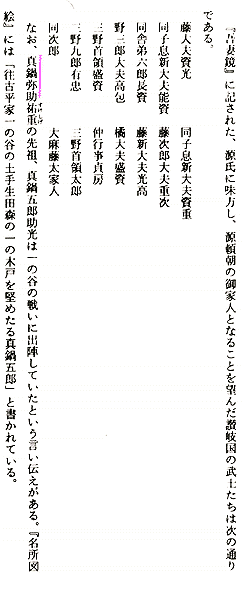 『吾妻鏡』に記された、源氏に味方し、源頼朝の御家人となることを望んだ讃岐国の武士たちは次の通り
である。
藤大夫資光　同子息新大夫資重
同子息新大夫能資　藤次郎大夫重次
同舎弟六郎長資　藤新大夫光高
野三郎大夫高包　橘大夫盛資
三野首領盛資　仲行事貞房
三野九郎有忠　三野首領太郎
同次郎　大麻藤太家人
なお、真鍋弥助祐重の先祖、真鍋五郎助光は一の谷の戦いに出陣していたという言い伝えがある。『名所図
絵』には「往古平家一の谷の土手生田森の一の木戸を堅めたる真鍋五郎」と書かれている。